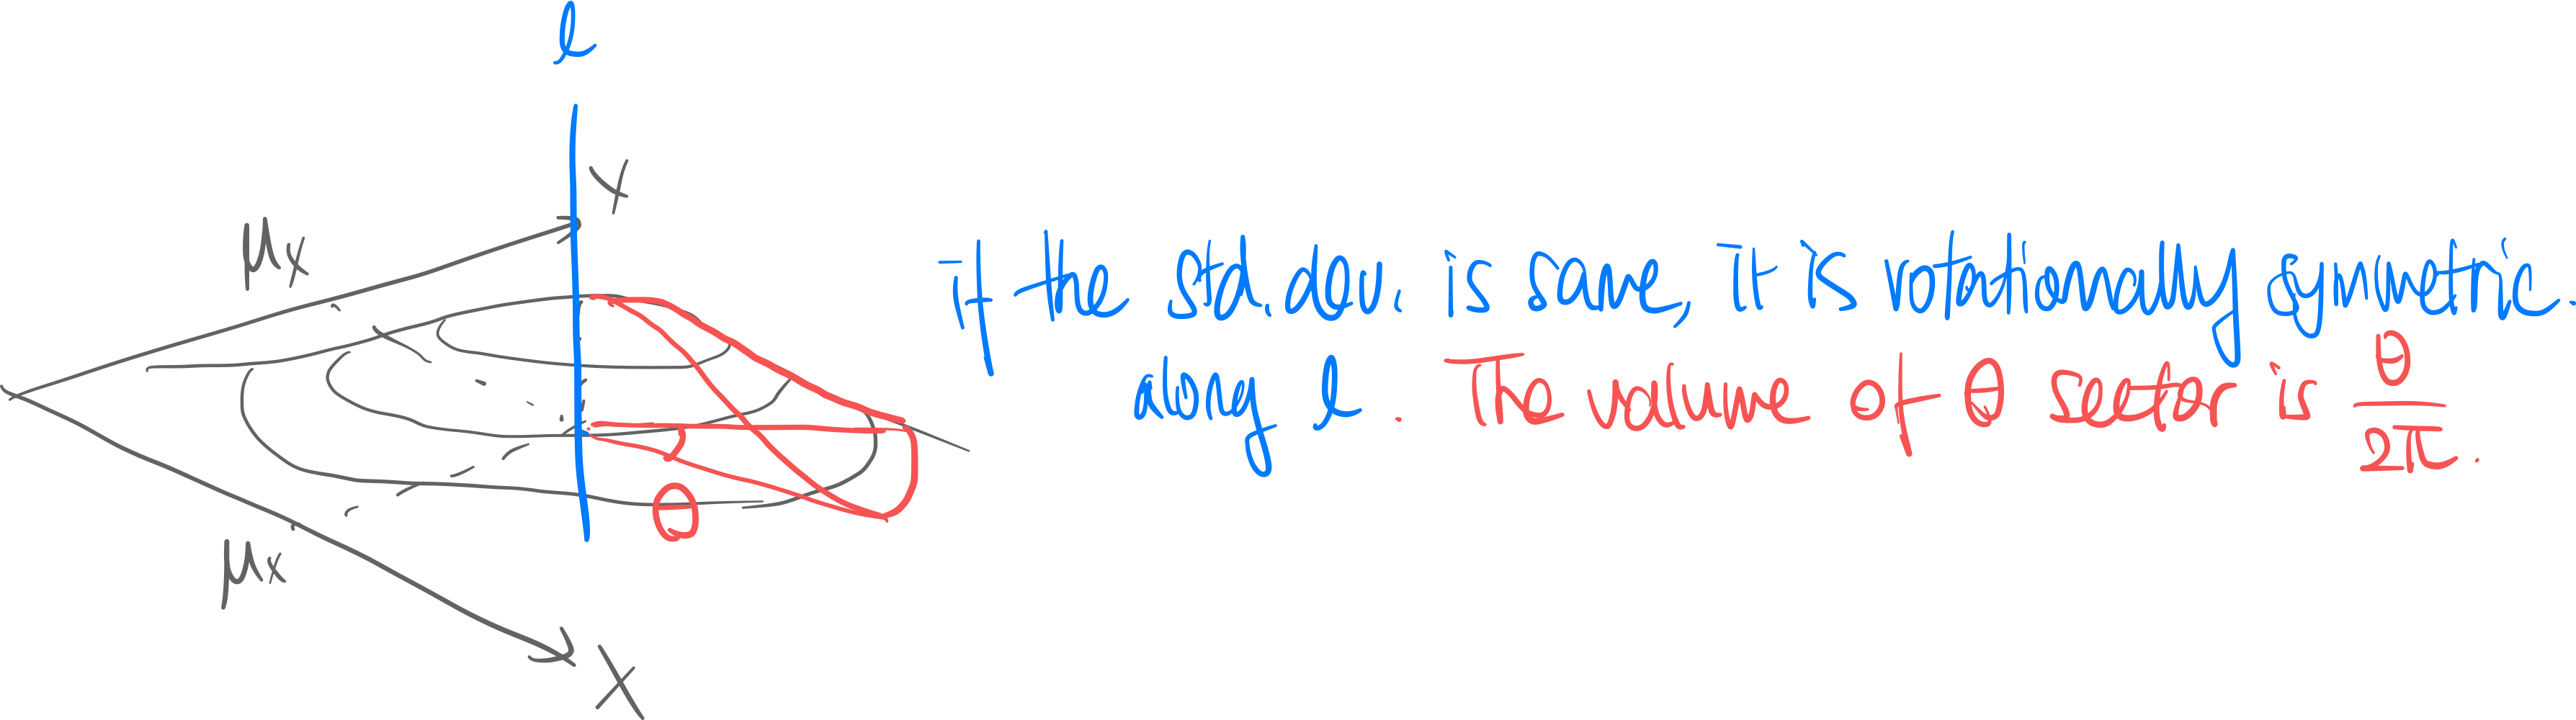 l
Y
μx
if the std. dev. is same, it is rotationally symmetric.
along l. The volume of θ sector is θ/2π.
θ
μx
X